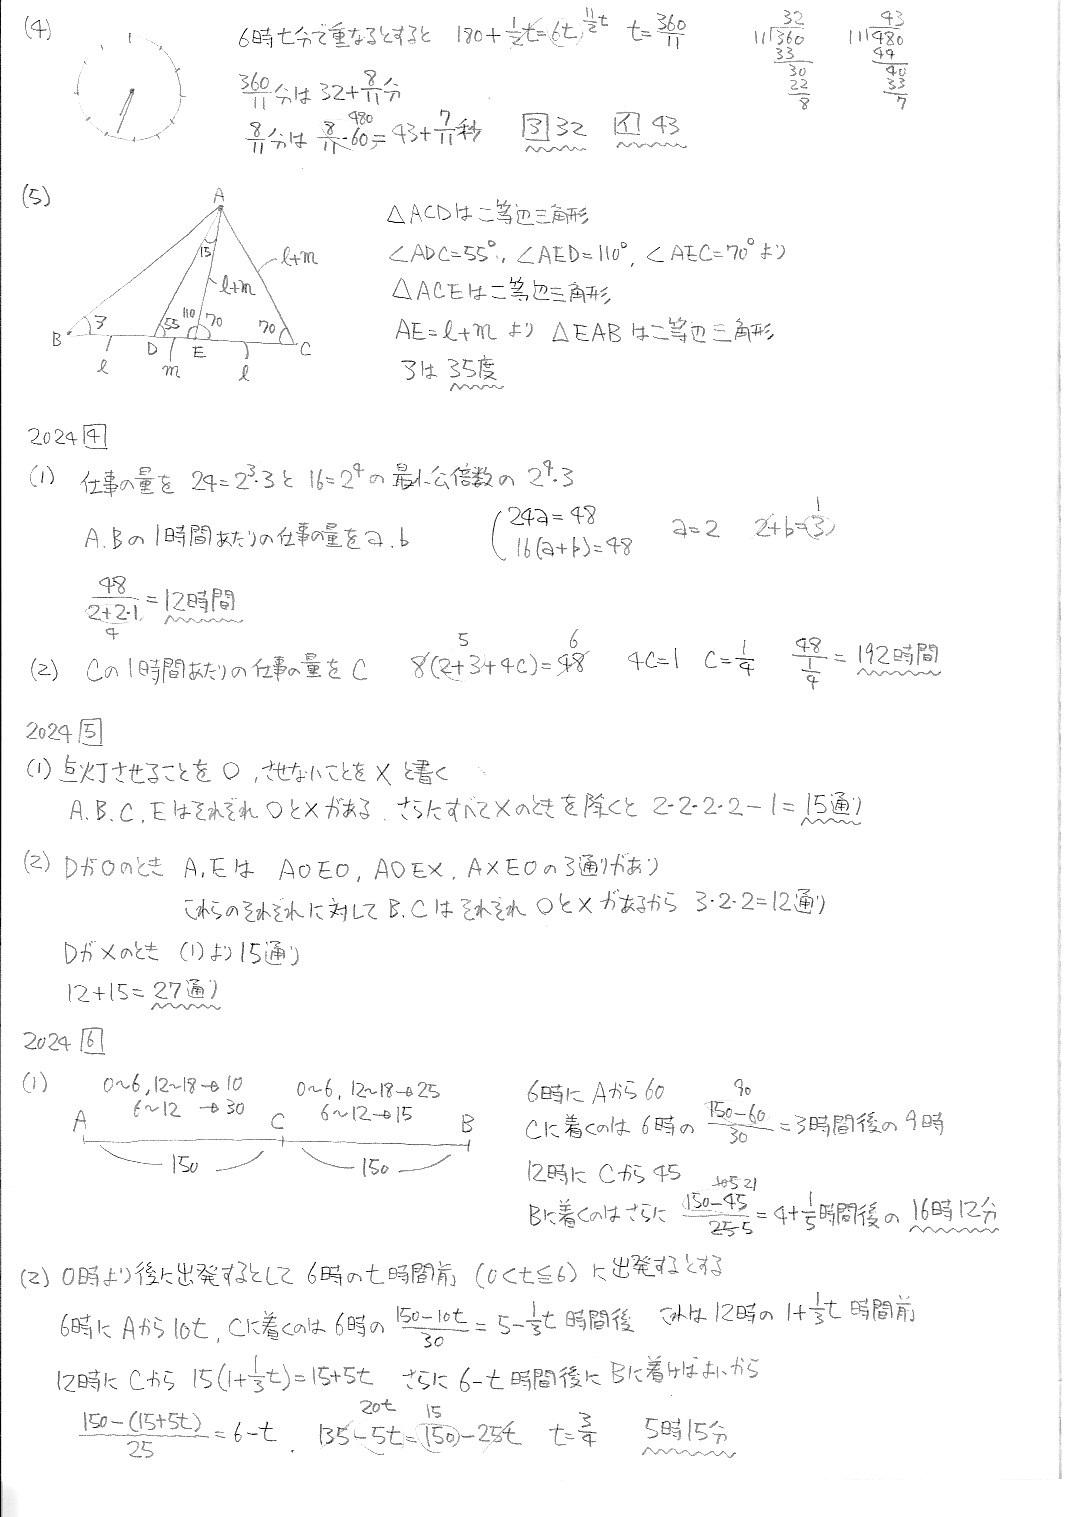 (4)
6時t分で重なるとすると 180+1/2t=6t 11/2t t=360/11
360/11分は32+8/11分
8/11分は8/11・60=43+7/11秒 480 ヨ32 イ43
32
11)360
33
30
22
8
43
11)480
44
40
33
7
(5)
A
15
l+m
l+m
B ヨ 55 110 70 70
D E C
l m l
△ACDは二等辺三角形
∠ADC=55°, ∠AED=110°, ∠AEC=70°より
△ACEは二等辺三角形
AE=l+mより △EABは二等辺三角形
ヨは35度
2024 4
(1) 仕事の量を 24=2³・3と 16=2⁴の最小公倍数の 2⁴・3
A.Bの1時間あたりの仕事の量をa.b
24a=48
16(a+b)=48
a=2 2+b=3 1
48/(2+2・1)=12時間
4
(2) Cの1時間あたりの仕事の量をC 8(2+3+4C)=48 5 6 4C=1 C=1/4 48/(1/4)=192時間
2024 5
(1) 点灯させることを○,させないことを×と書く
A.B.C.Eはそれぞれ○と×がある.さらにすべて×のときを除くと 2・2・2・2-1=15通り
(2) Dが○のとき A,Eは A○E○, A○E×, A×E○の3通りがあり
これらのそれぞれに対してB.Cはそれぞれ○と×があるから 3・2・2=12通り
Dが×のとき (1)より15通り
12+15=27通り
2024 6
(1)
0~6,12~18→10
6~12→30
0~6,12~18→25
6~12→15
A C B
150 150
6時にAから60
Cに着くのは6時の (150-60)/30=3時間後の9時
90
12時にCから45
Bに着くのはさらに (150-45)/25=4+1/5時間後の16時12分
105 21
5
(2) 0時より後に出発するとして6時のt時間前 (0<t≦6)に出発するとする
6時にAから10t, Cに着くのは6時の (150-10t)/30=5-1/3t時間後 これは12時の1+1/3t時間前
12時にCから 15(1+1/3t)=15+5t さらに6-t時間後にBに着けばよいから
(150-(15+5t))/25=6-t. 135-5t=150-25t 20t 15 t=3/4 5時15分